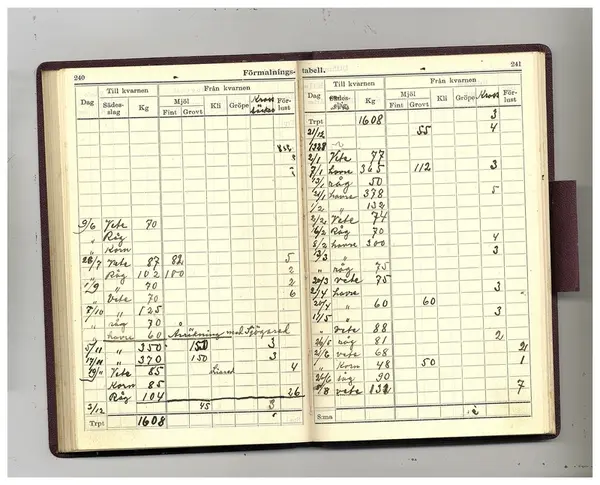 240 Förmalnings-
Dag Till kvarnen Från kvarnen
Sädes-slag Kg Mjöl Kli Gröpe Kross För-lust
Fint Grovt
9/6 Vete 70
" Råg
" Korn
28/7 Vete 87 82 5
" Råg 102 180 2
1/9 " 70 2
" Vete 70 6
7/10 " 125
" råg 70
" havre 60
5/11 " 350 150 3
17/11 " 370 150 3
Vete 85 4
Korn 85
Råg 104 26
3/12 45 3
Trpt 1608
tabell. 241
Dag Till kvarnen Från kvarnen
Kg Mjöl Kli Gröpe Kross För-lust
Fint Grovt
Trpt 1608 3
21/12 55 4
2/1 Vete 77
7/1 havre 365 112 3
13/1 råg 50
havre 378 5
1/2 " 132
2/2 Vete 74
16/2 Råg 70
8/2 havre 300 4
13/3 " 3
" råg 75
20/3 vete 75
2/4 havre 3
20/4 " 60 60
1/5 " 3
" vete 88
26/5 råg 81 2
2/6 vete 68 2
" Korn 48 50 1
26/6 råg 90
vete 132 7
S:ma